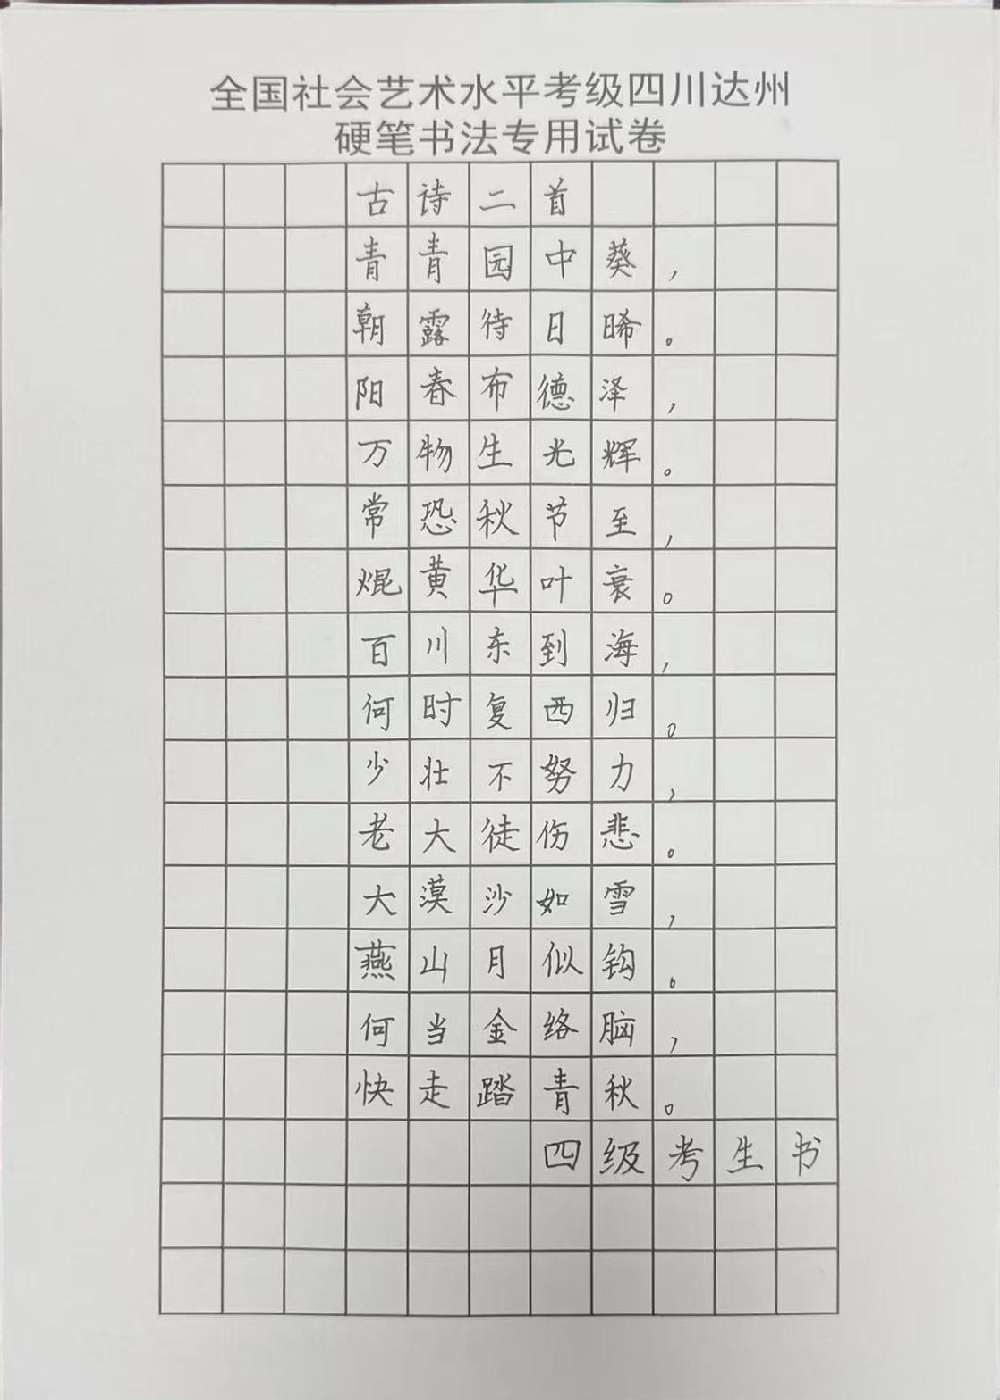 全国社会艺术水平考级四川达州
硬笔书法专用试卷
古诗二首
青青园中葵，
朝露待日晞。
阳春布德泽，
万物生光辉。
常恐秋节至，
焜黄华叶衰。
百川东到海，
何时复西归。
少壮不努力，
老大徒伤悲。
大漠沙如雪，
燕山月似钩。
何当金络脑，
快走踏青秋。
四级考生书